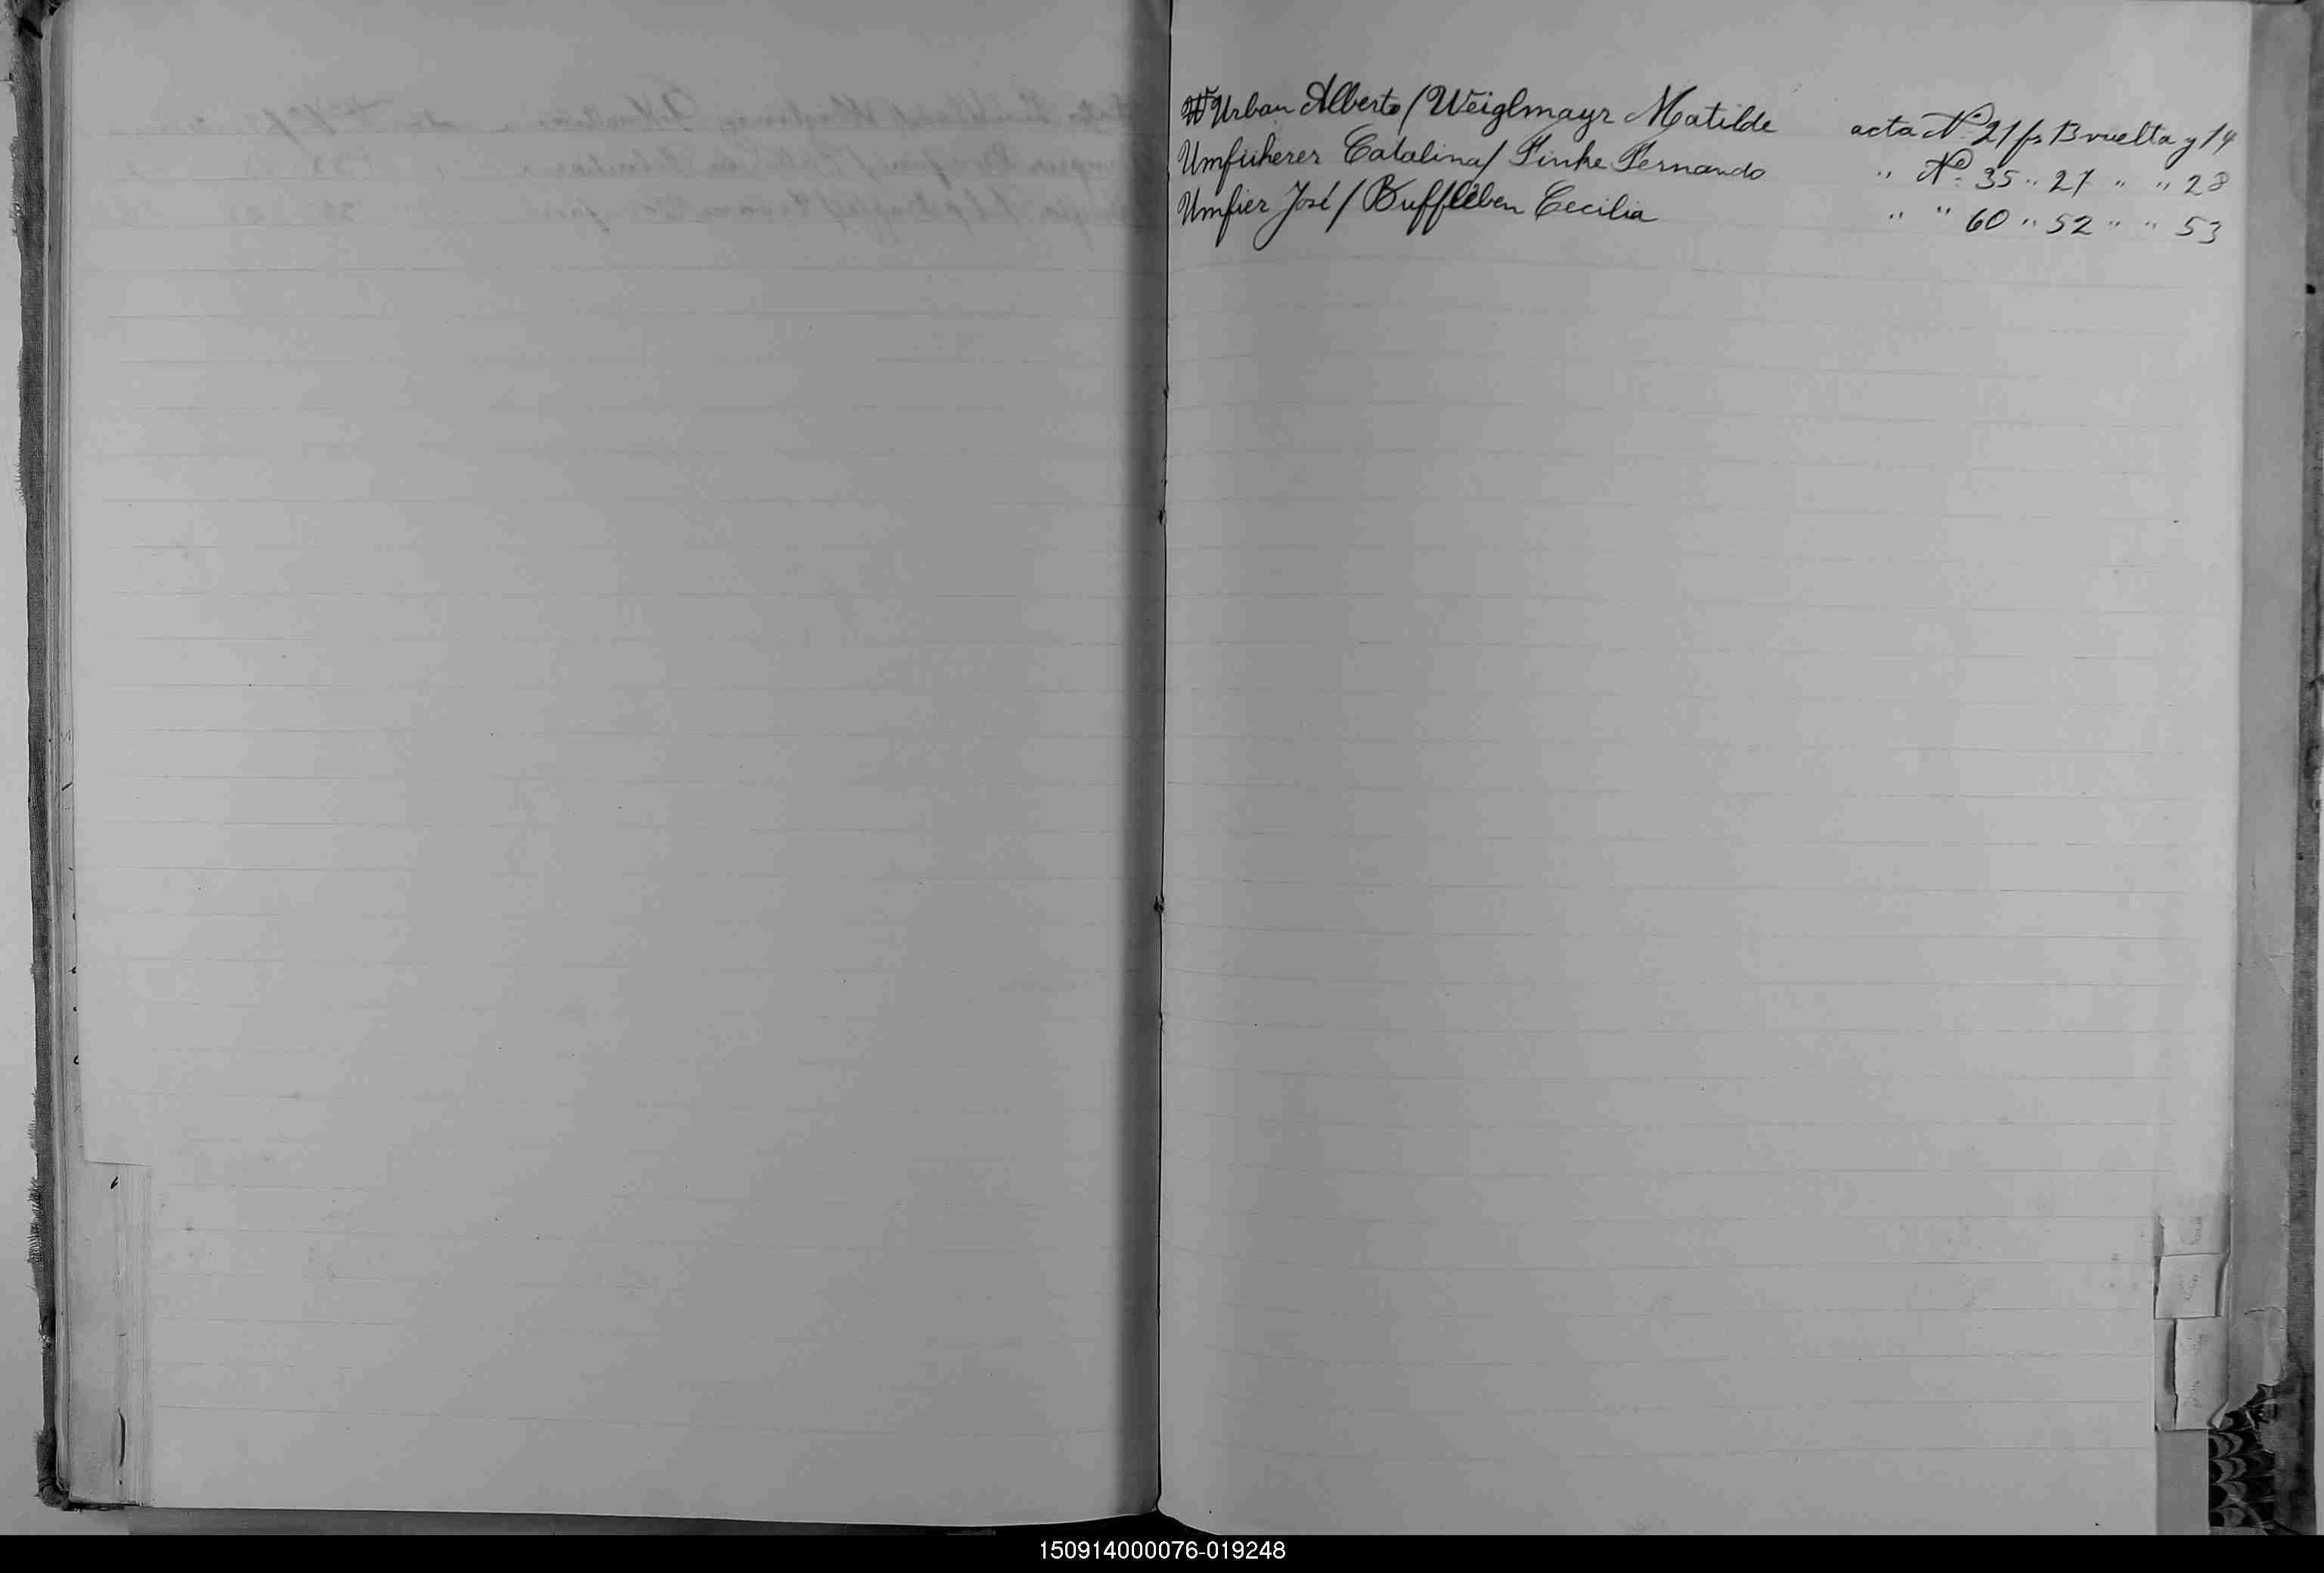 Urban Alberto / Weiglmayr Matilde acta Nº 21 fs 13 vuelta y 14
Umfüherer Catalina / Finke Fernando " Nº 35 " 27 " " 28
Umfier José / Buffleben Cecilia " " 60 " 52 " " 53
150914000076-019248